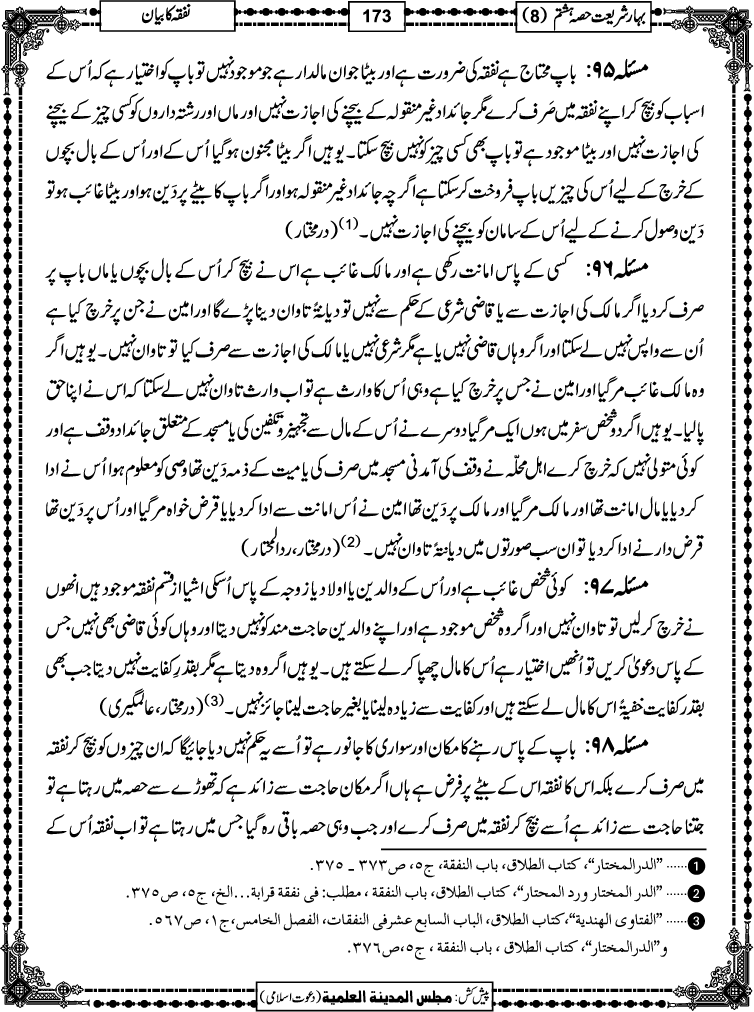 بہارِ شریعت حصہ ہشتم (8)
173
نفقہ کا بیان
مسئلہ ۹۵: باپ محتاج ہے نفقہ کی ضرورت ہے اور بیٹا جوان مالدار ہے جو موجود نہیں تو باپ کو اختیار ہے کہ اُس کے
اسباب کو بیچ کر اپنے نفقہ میں صَرف کرے مگر جائداد غیر منقولہ کے بیچنے کی اجازت نہیں اور ماں اور رشتہ داروں کو کسی چیز کے بیچنے
کی اجازت نہیں اور بیٹا موجود ہے تو باپ بھی کسی چیز کو نہیں بیچ سکتا۔ یوہیں اگر بیٹا مجنون ہوگیا اُس کے اور اُس کے بال بچوں
کے خرچ کے لیے اُس کی چیزیں باپ فروخت کرسکتا ہے اگرچہ جائداد غیر منقولہ ہو اور اگر باپ کا بیٹے پر دَین ہو اور بیٹا غائب ہو تو
دَین وصول کرنے کے لیے اُس کے سامان کو بیچنے کی اجازت نہیں۔ (1) (درمختار)
مسئلہ ۹۶: کسی کے پاس امانت رکھی ہے اور مالک غائب ہے اس نے بیچ کر اُس کے بال بچوں یا ماں باپ پر
صرف کردیا اگر مالک کی اجازت سے یا قاضی شرعی کے حکم سے نہیں تو دیانۃً تاوان دینا پڑے گا اور امین نے جن پر خرچ کیا ہے
اُن سے واپس نہیں لے سکتا اور اگر وہاں قاضی نہیں یا ہے مگر شرعی نہیں یا مالک کی اجازت سے صرف کیا تو تاوان نہیں۔ یوہیں اگر
وہ مالک غائب مرگیا اور امین نے جس پر خرچ کیا ہے وہی اُس کا وارث ہے تو اب وارث تاوان نہیں لے سکتا کہ اس نے اپنا حق
پالیا۔ یوہیں اگر دو شخص سفر میں ہوں ایک مرگیا دوسرے نے اُس کے مال سے تجہیز و تکفین کی یا مسجد کے متعلق جائداد وقف ہے اور
کوئی متولی نہیں کہ خرچ کرے اہل محلّہ نے وقف کی آمدنی مسجد میں صرف کی یا میت کے ذمہ دَین تھا وصی کو معلوم ہوا اُس نے ادا
کردیا یا مال امانت تھا اور مالک مرگیا اور مالک پر دَین تھا امین نے اُس امانت سے ادا کردیا یا قرض خواہ مرگیا اور اُس پر دَین تھا
قرض دار نے ادا کردیا تو ان سب صورتوں میں دیانۃً تاوان نہیں۔ (2) (درمختار، ردالمحتار)
مسئلہ ۹۷: کوئی شخص غائب ہے اور اُس کے والدین یا اولاد یا زوجہ کے پاس اُسکی اشیا از قسم نفقہ موجود ہیں انھوں
نے خرچ کرلیں تو تاوان نہیں اور اگر وہ شخص موجود ہے اور اپنے والدین حاجت مند کو نہیں دیتا اور وہاں کوئی قاضی بھی نہیں جس
کے پاس دعویٰ کریں تو اُنھیں اختیار ہے اُس کا مال چھپا کر لے سکتے ہیں۔ یوہیں اگر وہ دیتا ہے مگر بقدرِ کفایت نہیں دیتا جب بھی
بقدر کفایت خفیۃً اُس کا مال لے سکتے ہیں اور کفایت سے زیادہ لینا یا بغیر حاجت لینا جائز نہیں۔ (3) (درمختار، عالمگیری)
مسئلہ ۹۸: باپ کے پاس رہنے کا مکان اور سواری کا جانور ہے تو اُسے یہ حکم نہیں دیا جائیگا کہ ان چیزوں کو بیچ کر نفقہ
میں صرف کرے بلکہ اس کا نفقہ اس کے بیٹے پر فرض ہے ہاں اگر مکان حاجت سے زائد ہے کہ تھوڑے سے حصہ میں رہتا ہے تو
جتنا حاجت سے زائد ہے اُسے بیچ کر نفقہ میں صرف کرے اور جب وہی حصہ باقی رہ گیا جس میں رہتا ہے تو اب نفقہ اُس کے
1 ...... ”الدرالمختار“، کتاب الطلاق، باب النفقة، ج٥، ص٣٧٣ ـ ٣٧٥.
2 ...... ”الدر المختار ورد المحتار“، کتاب الطلاق، باب النفقة ، مطلب: فی نفقة قرابة...الخ، ج٥، ص٣٧٥.
3 ...... ”الفتاوی الهندية“، کتاب الطلاق، الباب السابع عشرفی النفقات، الفصل الخامس،ج١، ص٥٦٧.
و”الدرالمختار“، کتاب الطلاق ، باب النفقة ، ج٥،ص٣٧٦.
پیش کش: مجلس المدینة العلمیة (دعوت اسلامی)